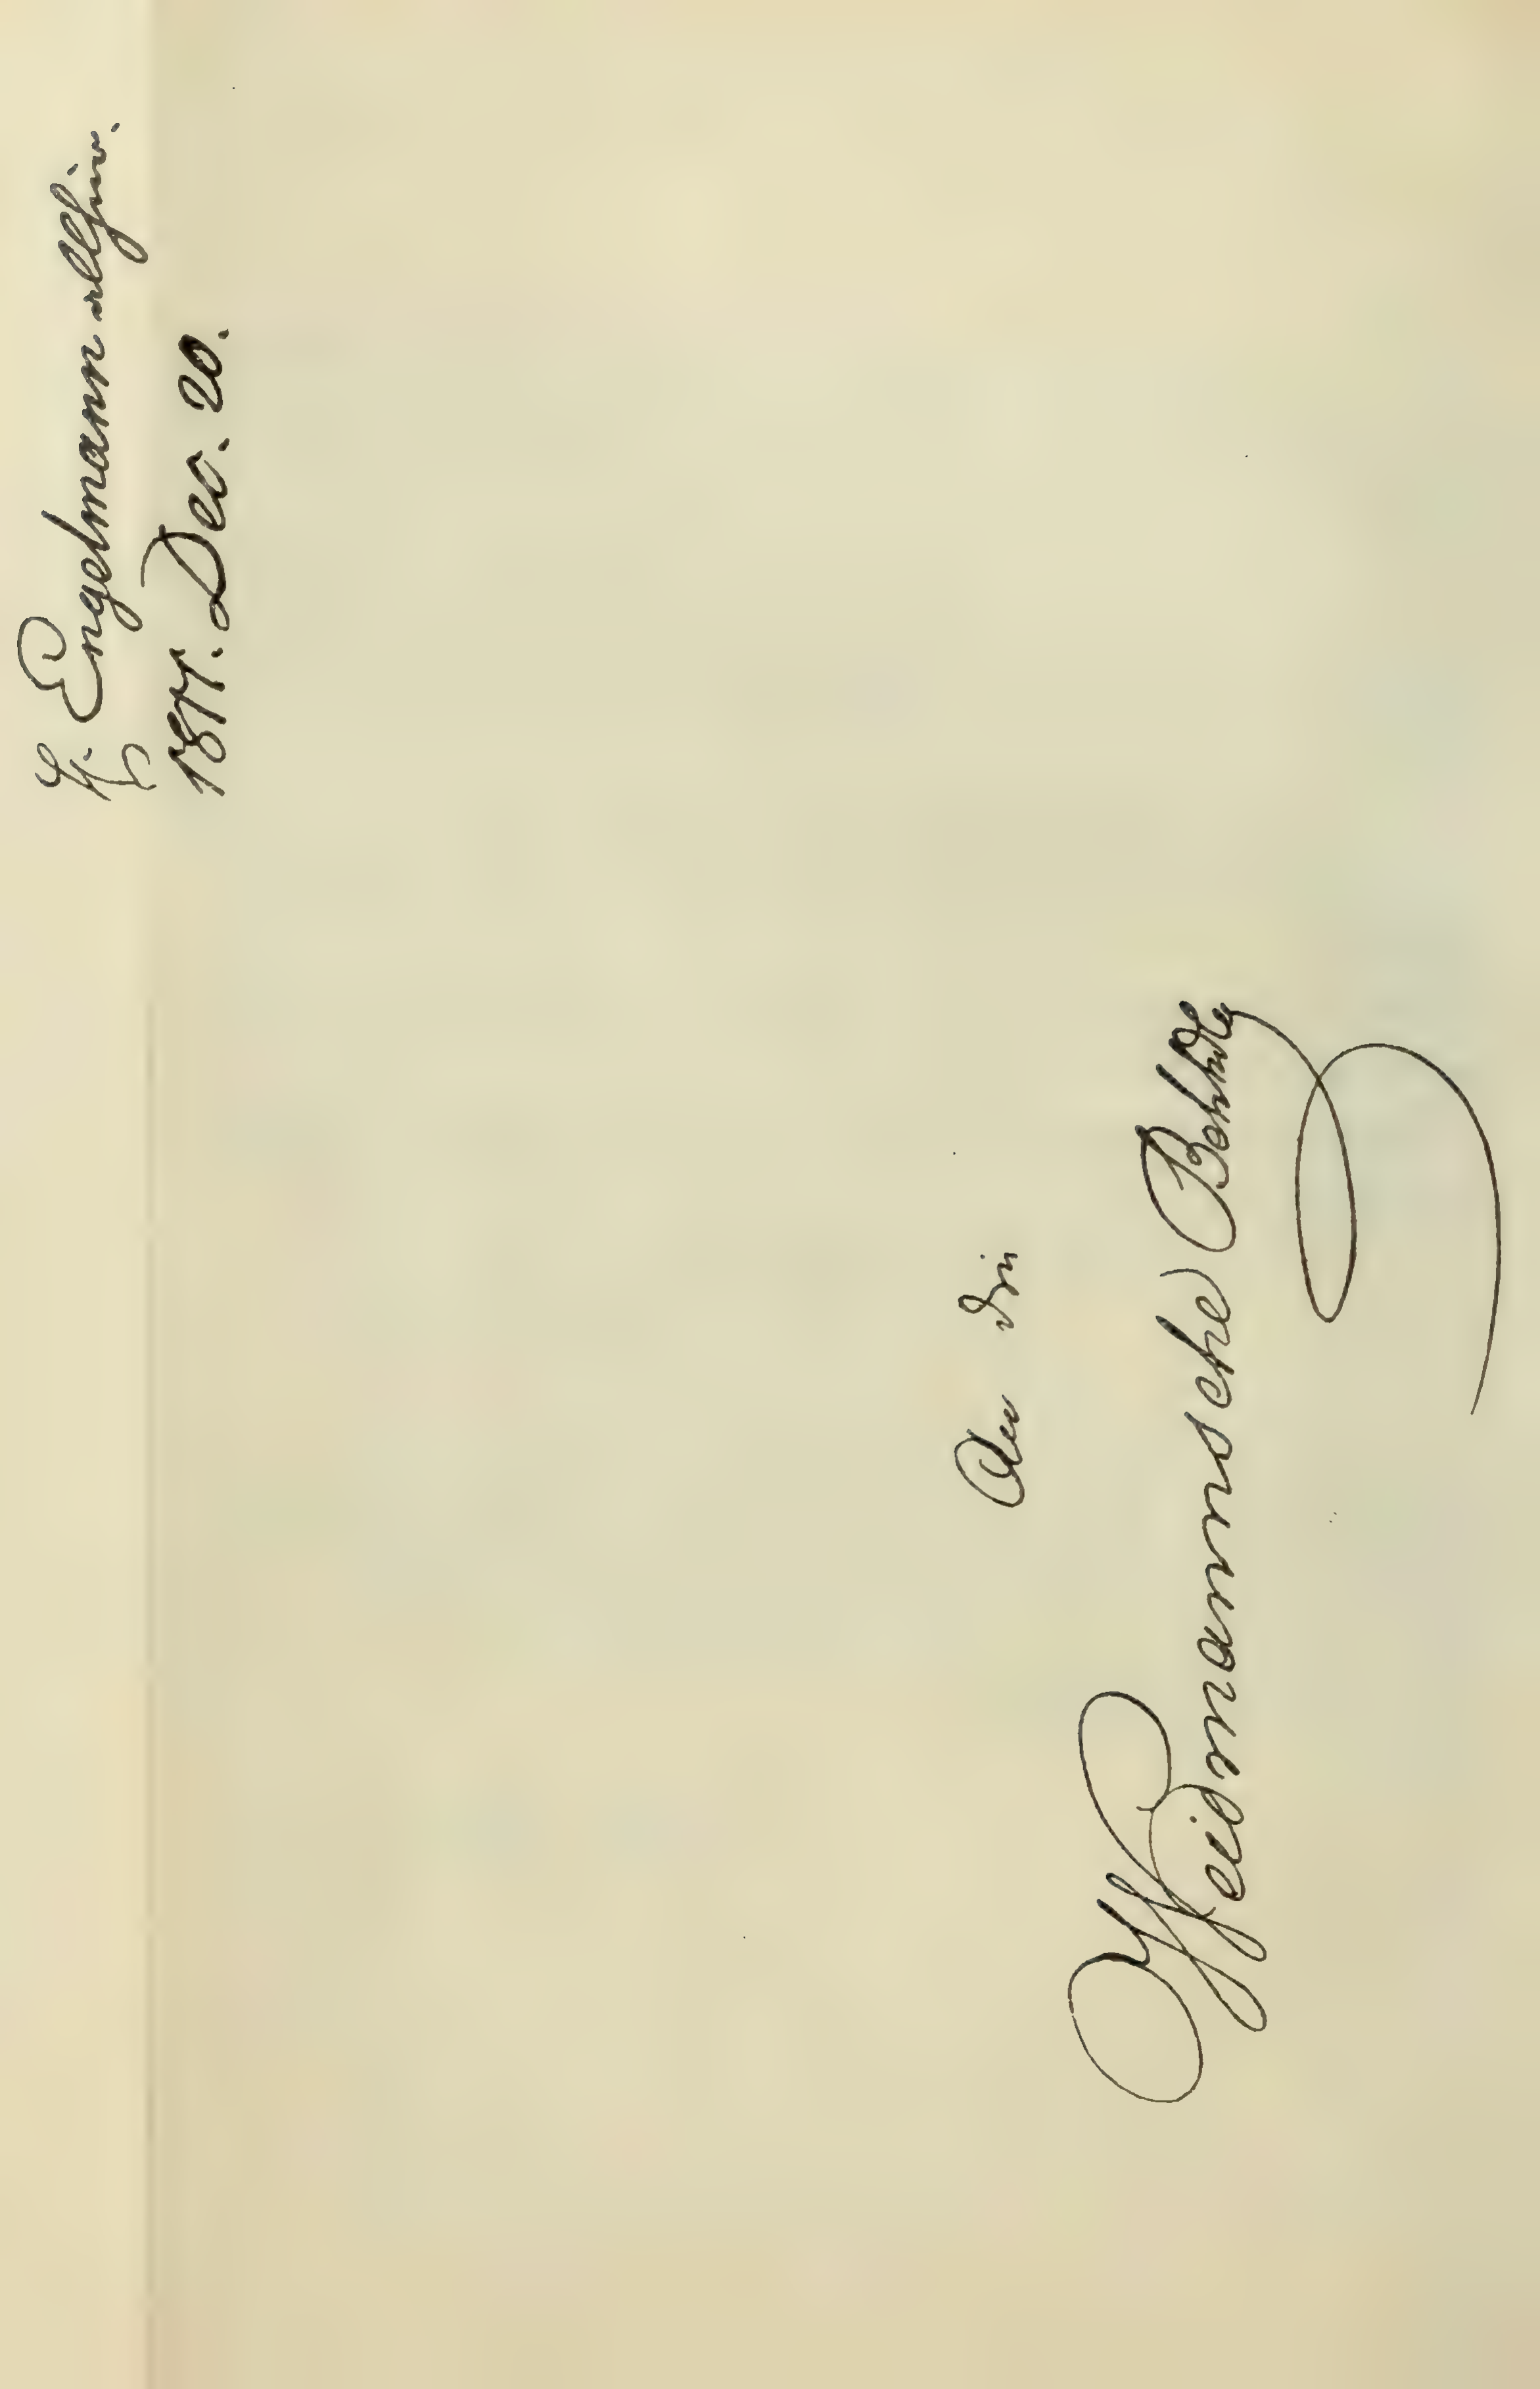 H. Engelmann allhier.
1811. Dec. 20.
An die
Weidmannsche Bchhdlg